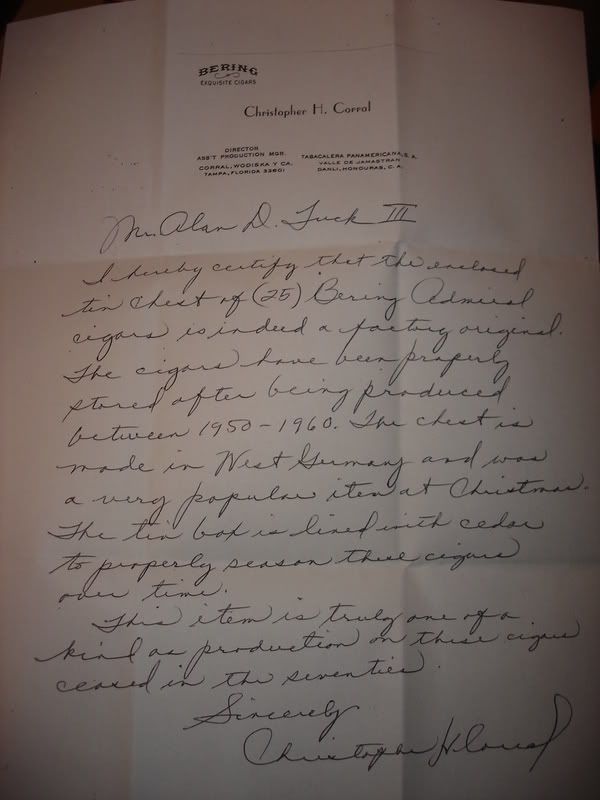 BERING
EXQUISITE CIGARS
Christopher H. Corral
DIRECTOR
ASS'T PRODUCTION MGR.
CORRAL, WODISKA Y CA.
TAMPA, FLORIDA 33601
TABACALERA PANAMERICANA, S. A.
VALLE DE JAMASTRAN
DANLI, HONDURAS, C. A.
Mr. Alan D. Tuck III
I hereby certify that the enclosed
tin chest of (25) Bering Admiral
cigars is indeed a factory original.
The cigars have been properly
stored after being produced
between 1950-1960. The chest is
made in West Germany and was
a very popular item at Christmas.
The tin box is lined with cedar
to properly season these cigars
over time.
This item is truly one of a
kind as production on these cigars
ceased in the seventies.
Sincerely
Christopher H Corral